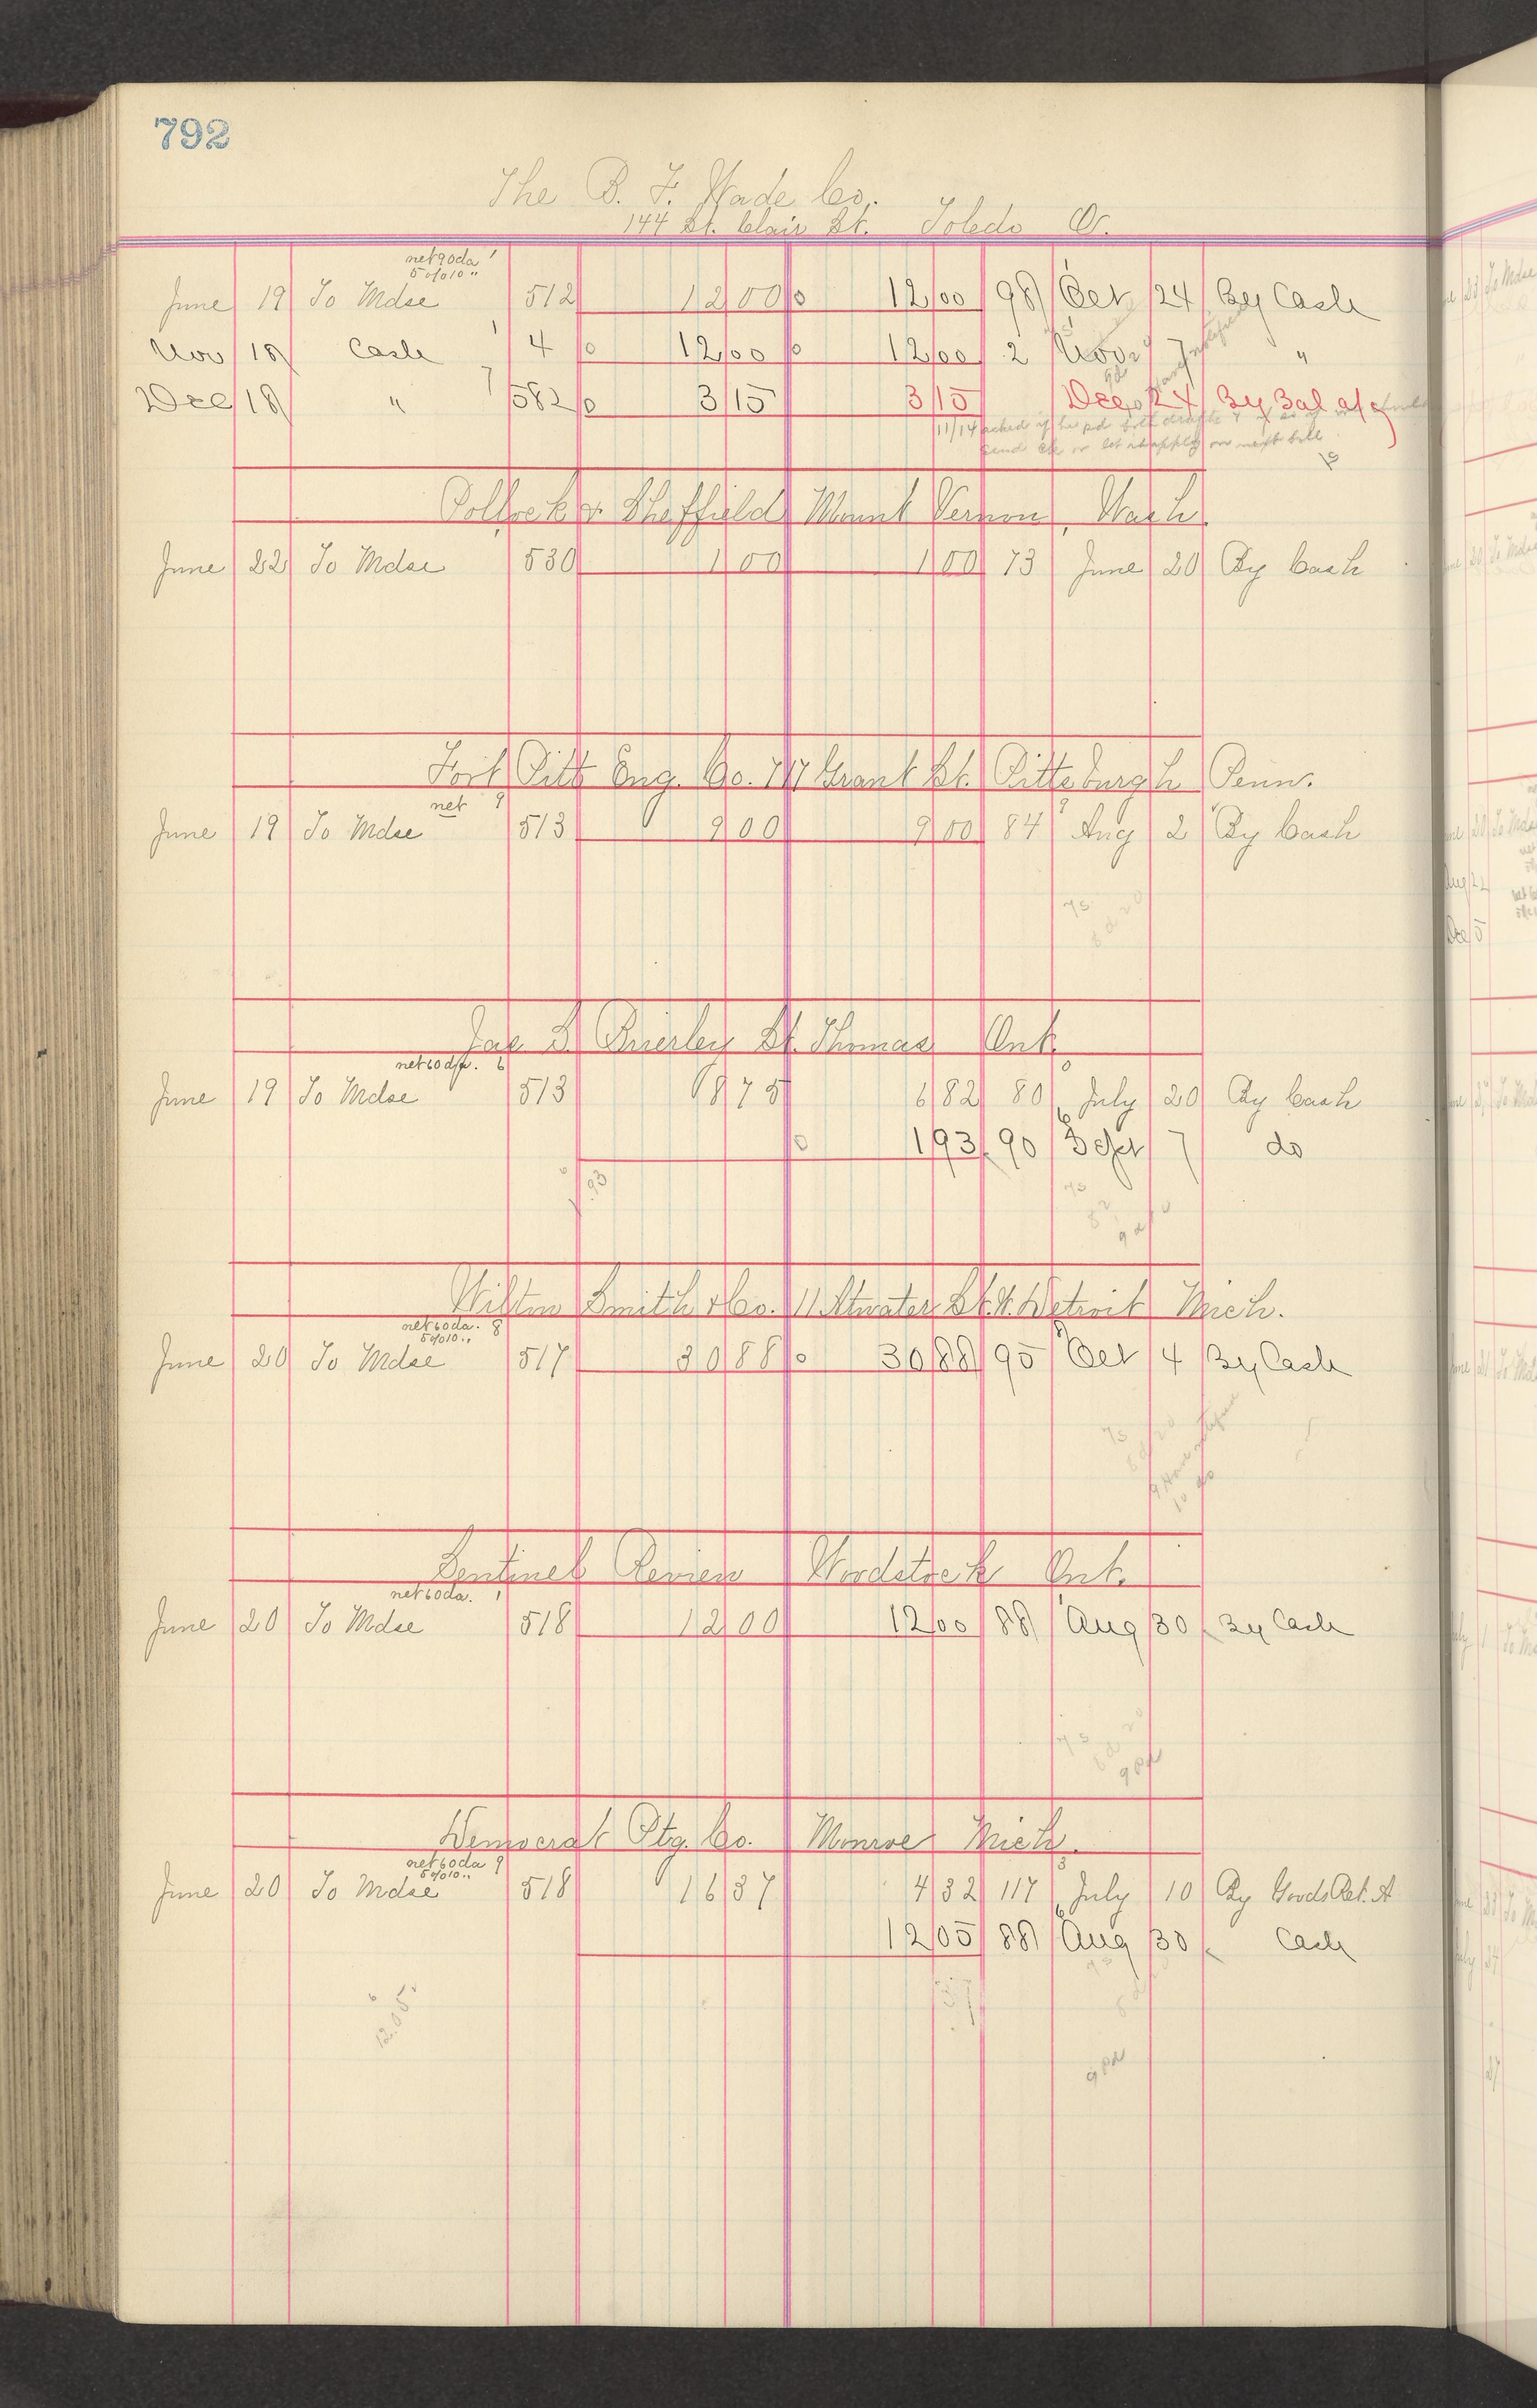 792
The B. F. Wade Co.
144 St. Clair St. Toledo O.
net 90 da 1
5 % 10 "
June 19 To Mdse 512 12 00 0 12 00 98 Oct 24 By Cash
Nov 18 Cash 4 0 12 00 0 12 00 2 Nov 7 "
Dec 18 " 7 582 0 3 15 3 15 Dec 24 By Bal a/c
11/14 asked if he pd both drafts
send ck or let it apply on next bill
Pollock & Sheffield Mount Vernon, Wash.
June 22 To Mdse 530 1 00 1 00 73 June 20 By Cash
Fort Pitt Eng. Co. 717 Grant St. Pittsburgh Penn.
net 9
June 19 To Mdse 513 9 00 9 00 84 Aug 2 By Cash
75
8 d 20
Jas S. Brierley St. Thomas Ont.
net 60 da. 6
June 19 To Mdse 513 8 75 6 82 80 July 20 By Cash
0 1 93 90 Sept 7 do
1.93
75
Wilton Smith & Co. 11 Atwater St. W. Detroit Mich.
net 60 da. 8
5 % 10 "
June 20 To Mdse 517 30 88 0 30 88 95 Oct 4 By Cash
75
8 d 20
9 Have notified
10 do
Sentinel Review Woodstock Ont.
net 60 da. 1
June 20 To Mdse 518 12 00 12 00 88 Aug 30 By Cash
75
8 d 20
9 pd
Democrat Ptg. Co. Monroe Mich.
net 60 da 9
5 % 10 "
June 20 To Mdse 518 16 37 4 32 117 July 10 By Goods Ret. A
12 05 88 Aug 30 Cash
12.05
9 pd